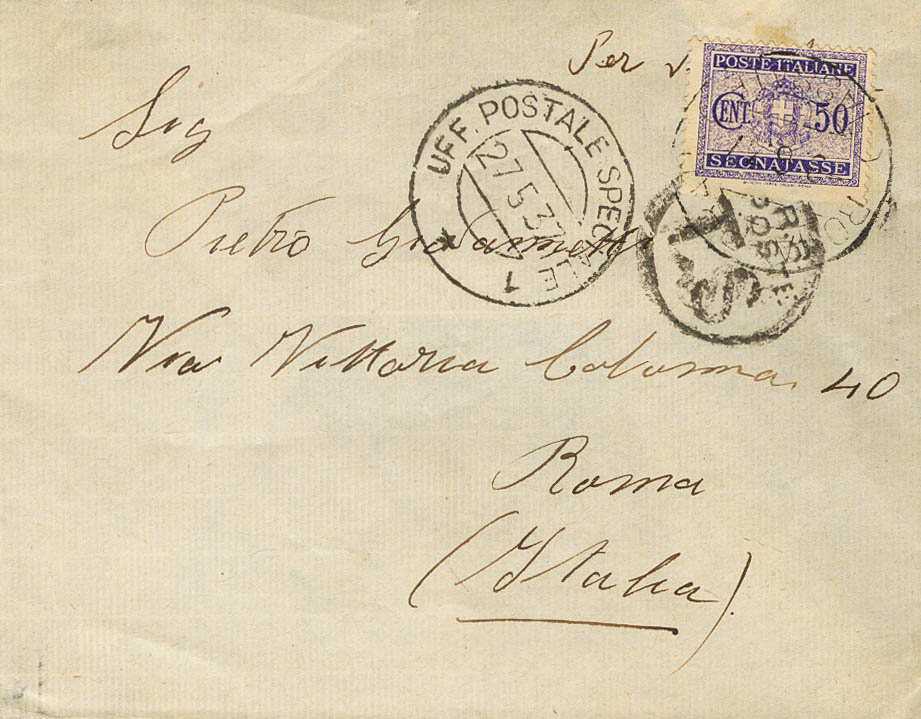 Per
POSTE ITALIANE
CENT. 50
SEGNATASSE
UFF. POSTALE SPECIALE 1
27.5.37
T S
Sig
Pietro
Via Vittoria Colonna 40
Roma
(Italia)